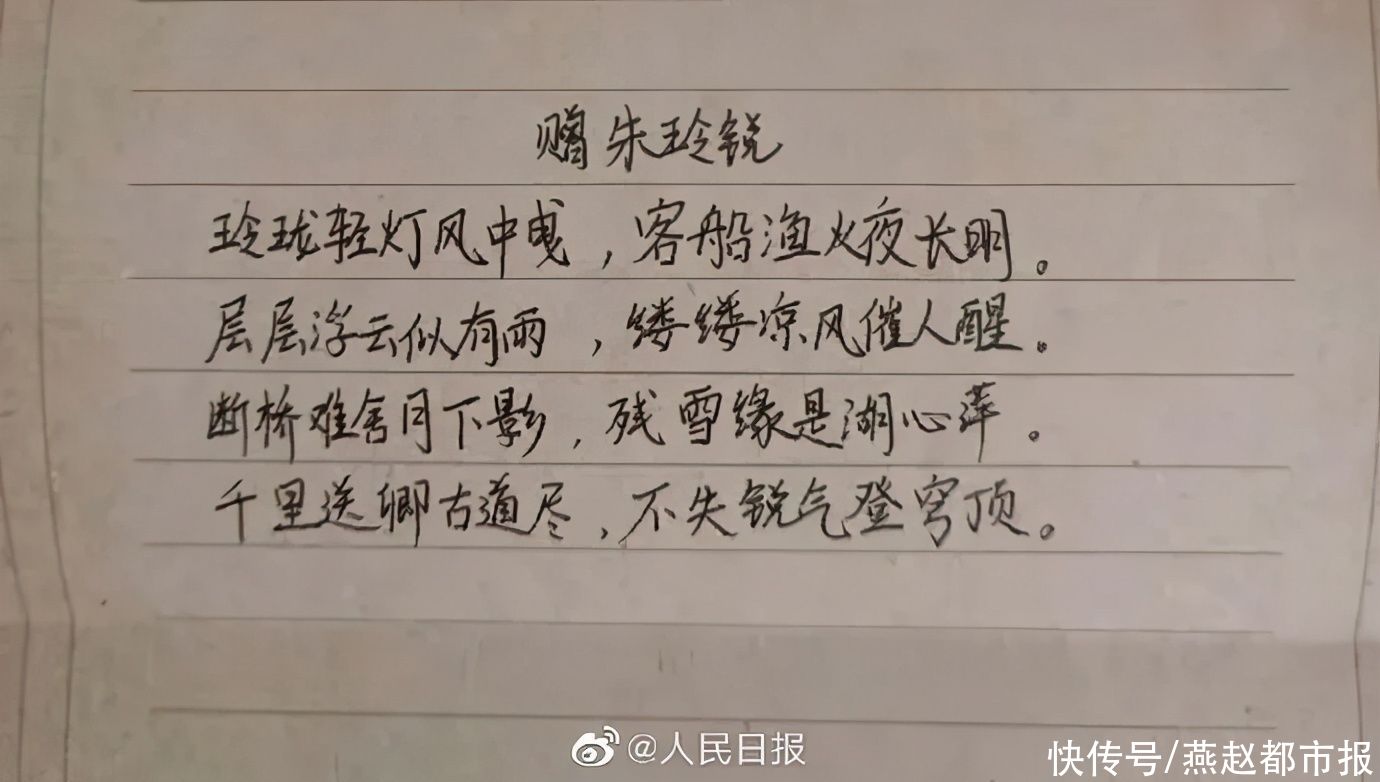 赠朱玲锐
玲珑轻灯风中曳，客船渔火夜长明。
层层浮云似有雨，缕缕凉风催人醒。
断桥难舍月下影，残雪缘是湖心萍。
千里送卿古道尽，不失锐气登穹顶。
@人民日报
快传号/燕赵都市报